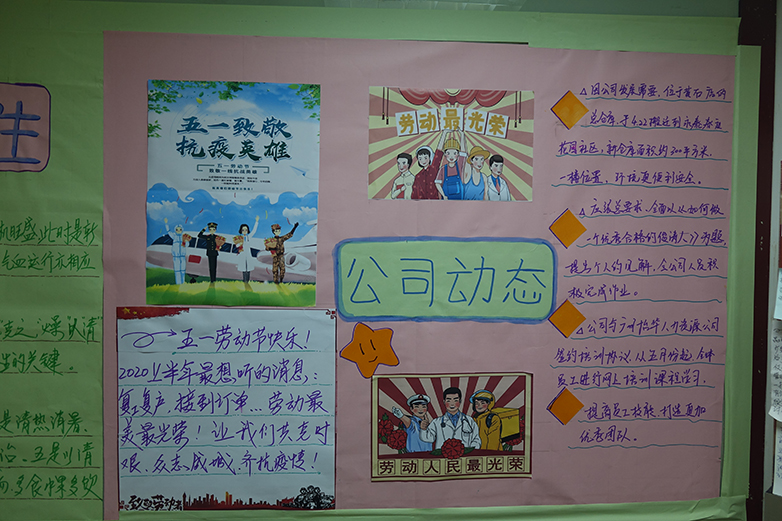 生
机旺盛,此时是新
气血运行亦相应
生的关键。
是清热清暑、
五一致敬
抗疫英雄
五一劳动节
五一劳动节快乐!
2020上半年最想听的消息:
复工复产,接到订单...劳动最
美最光荣!让我们共克时
艰、众志成城、齐抗疫情!
致敬劳动者
劳动最光荣
公司动态
劳动人民最光荣
△因公司发展需要,位于黄石店的
总仓库,于4.22搬迁到
花园社区,新仓库面积约300平方米,
一楼位置,环境更便利安全。
△应张总要求,全面认从如何做
一个优秀合格的
提出个人的见解,全公司人员积
极完成作业。
△公司与广州怡华人力资源公司
签约培训协议,从五月份起,全体
员工进行网上培训课程学习,
提高员工技能,打造更加
优秀团队。